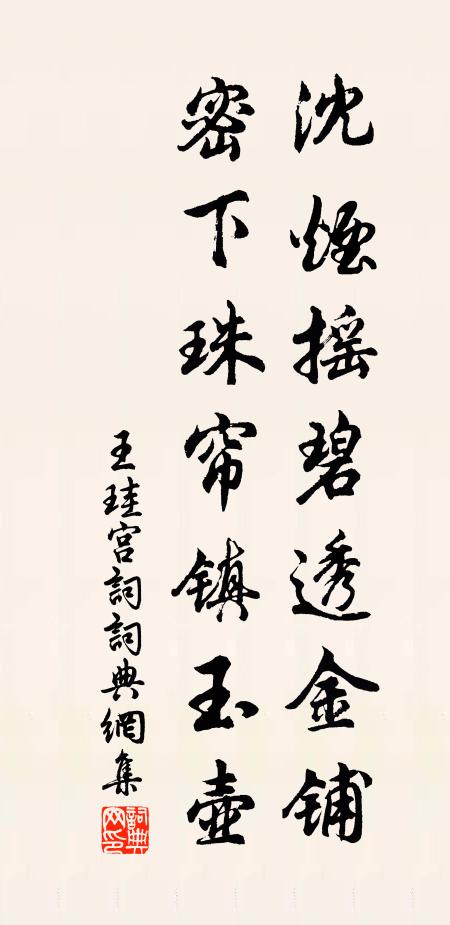 沈烟摇碧透金铺
密下珠帘镇玉壶
王珪宫詞詞典網集
詞典
网印